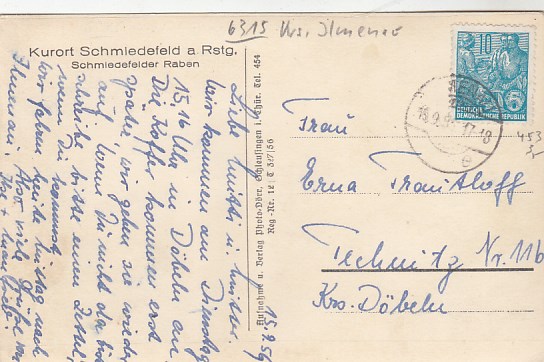 6315 Krs. Ilmenau
Kurort Schmiedefeld a. Rstg.
Schmiedefelder Raben
15.9.56
Liebe Mutti u.
wir kommen am Dienstag
15,10 Uhr in Döbeln an.
Die Koffer kommen erst
später, wir geben sie wieder
auf. Wenn Du nicht da bist
schreibe bitte einen Zettel,
wenn Du kommst.
Wir fahren heute Mittag nach
Ilmenau. Also viele Grüße von
Aufnahme u. Verlag Photo-Döer, Schleusingen i. Thür. Tel. 454
Reg.-Nr. 12 T 387/56
10
DEUTSCHE
DEMOKRATISCHE REPUBLIK
453
Frau
Erna Trautloff
Technitz Nr. 11b
Krs. Döbeln